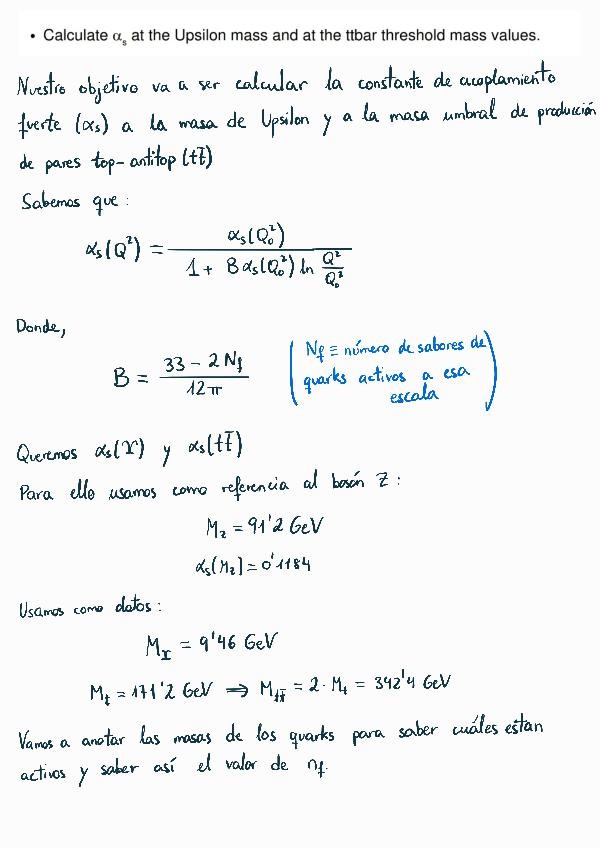 • Calculate αs at the Upsilon mass and at the ttbar threshold mass values.
Nuestro objetivo va a ser calcular la constante de acoplamiento
fuerte (αs) a la masa de Upsilon y a la masa umbral de producción
de pares top-antitop (tt̄)
Sabemos que:
αs(Q²) = αs(Q₀²) / (1 + B αs(Q₀²) ln Q²/Q₀²)
Donde,
B = (33 - 2 Nf) / 12π
(Nf ≡ número de sabores de
quarks activos a esa
escala)
Queremos αs(Υ) y αs(tt̄)
Para ello usamos como referencia al bosón Z:
Mz = 91'2 GeV
αs(Mz) = 0'1184
Usamos como datos:
MΥ = 9'46 GeV
Mt = 171'2 GeV ⇒ Mtt̄ = 2 · Mt = 342'4 GeV
Vamos a anotar las masas de los quarks para saber cuáles estan
activos y saber así el valor de nf.